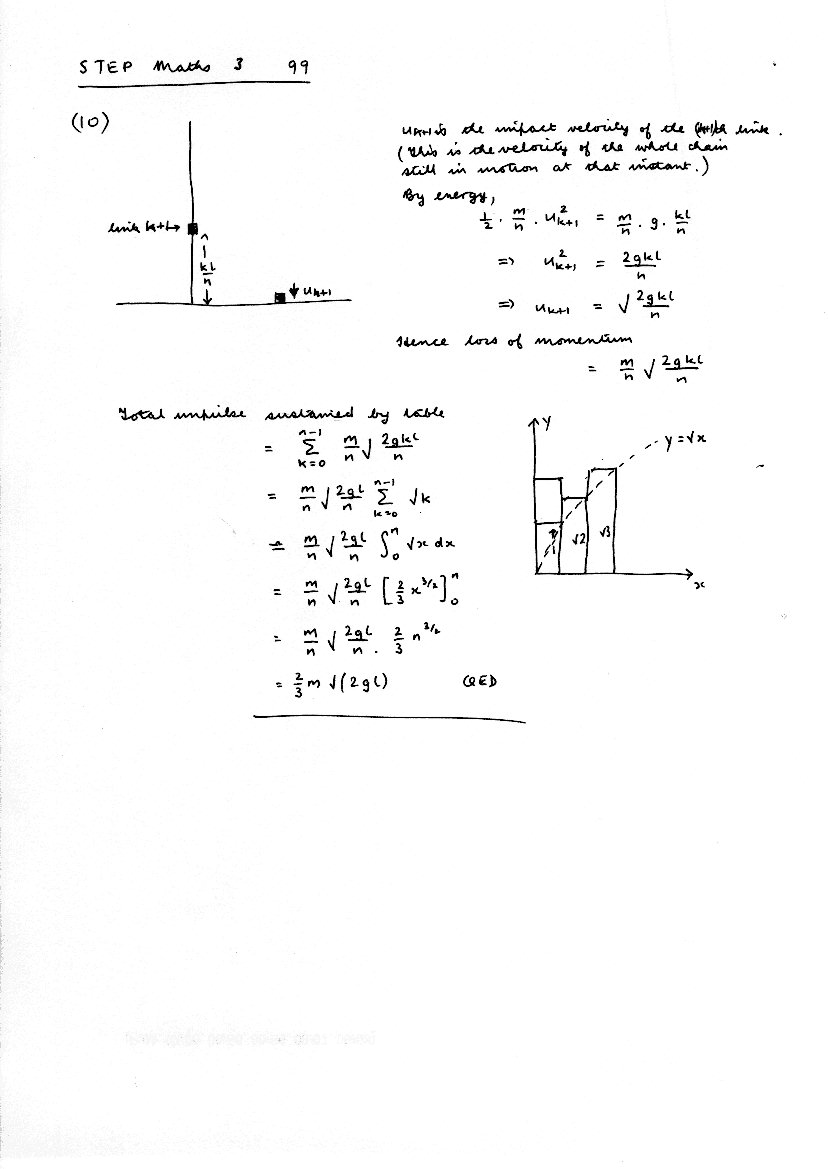 STEP Maths 3 99
(10)
u_{k+1} is the impact velocity of the (k+1)th link.
(this is the velocity of the whole chain
still in motion at that instant.)
By energy,
1/2 . m/n . u²_{k+1} = m/n . g . kl/n
=> u²_{k+1} = 2gkl/n
=> u_{k+1} = √2gkl/n
link k+1 →
kl/n
↓ u_{k+1}
Hence loss of momentum
= m/n √2gkl/n
Total impulse sustained by table
= Σ_{k=0}^{n-1} m/n √2gkl/n
= m/n √2gl/n Σ_{k=0}^{n-1} √k
≏ m/n √2gl/n ∫_0^n √x dx
= m/n √2gl/n [2/3 x^{3/2}]_0^n
= m/n √2gl/n . 2/3 n^{3/2}
= 2/3 m √(2gl) QED
y
y = √x
1 √2 √3
x